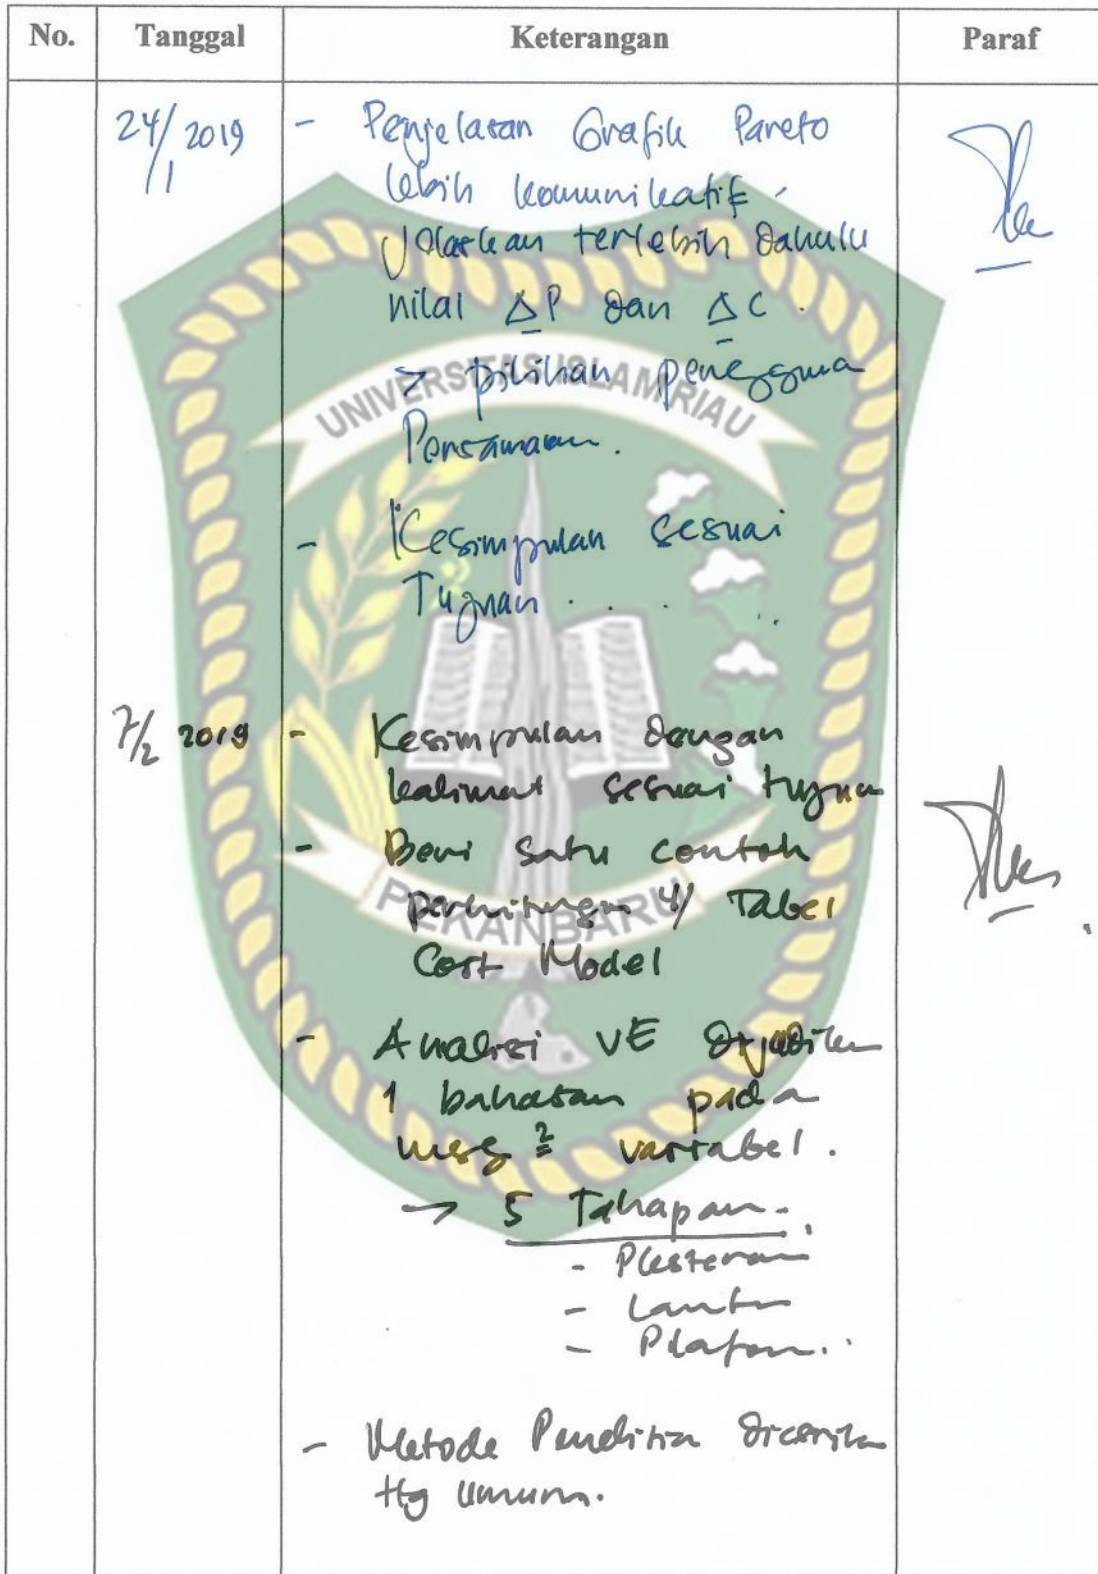 No. Tanggal Keterangan Paraf
24/1 2019 - Penjelasan Grafik Pareto
lebih komunikatif -
Jelaskan terlebih dahulu
nilai ΔP dan ΔC.
UNIVERSITAS ISLAM RIAU
> pilihan pengguna
Persamaan.
- Kesimpulan sesuai
Tujuan . . . .
7/2 2019 - Kesimpulan dengan
kalimat sesuai tujuan
- Beri satu contoh
perhitungan u/ Tabel
PEKANBARU
Cost Model
- Analisi VE dijadikan
1 bahasan pada
msg² variabel.
→ 5 Tahapan.
- Plesteran
- Lantai
- Plafon..
- Metode Penelitian
umum.